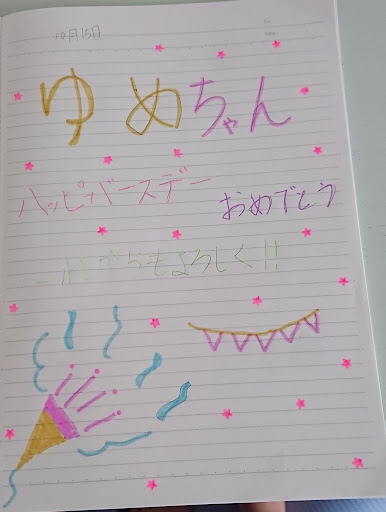 10月15日
ゆめちゃん
ハッピーバースデー
おめでとう
これからもよろしく!!